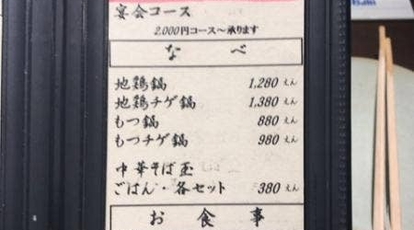 宴会コース
2,000円コース〜承ります
なべ
地鶏鍋 1,280 えん
地鶏チゲ鍋 1,380 えん
もつ鍋 880 えん
もつチゲ鍋 980 えん
中華そば玉
ごはん・各セット 380 えん
お食事